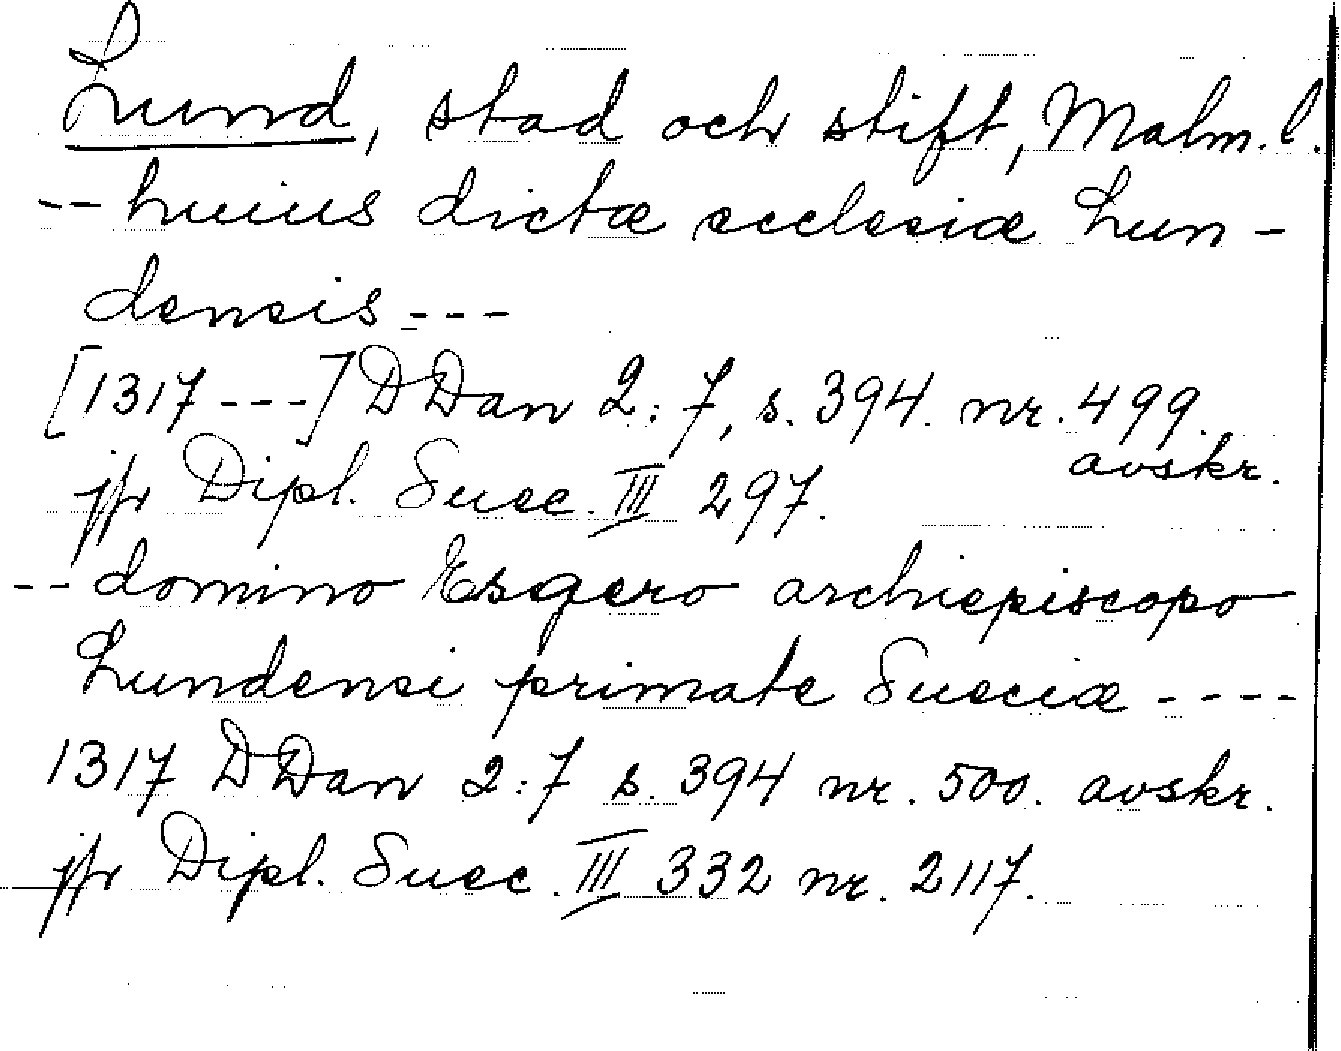 Lund, stad och stift, Malm. l.
-- huius dictæ ecclesiæ Lun-
densis ---
[1317 ---] DDan 2: 7, s. 394. nr. 499.
avskr.
jfr Dipl. Suec. III 297.
-- domino Esgero archiepiscopo
Lundensi primate Sueciæ ----
1317 DDan 2:7 s. 394 nr. 500. avskr.
jfr Dipl. Suec. III 332 nr. 2117.